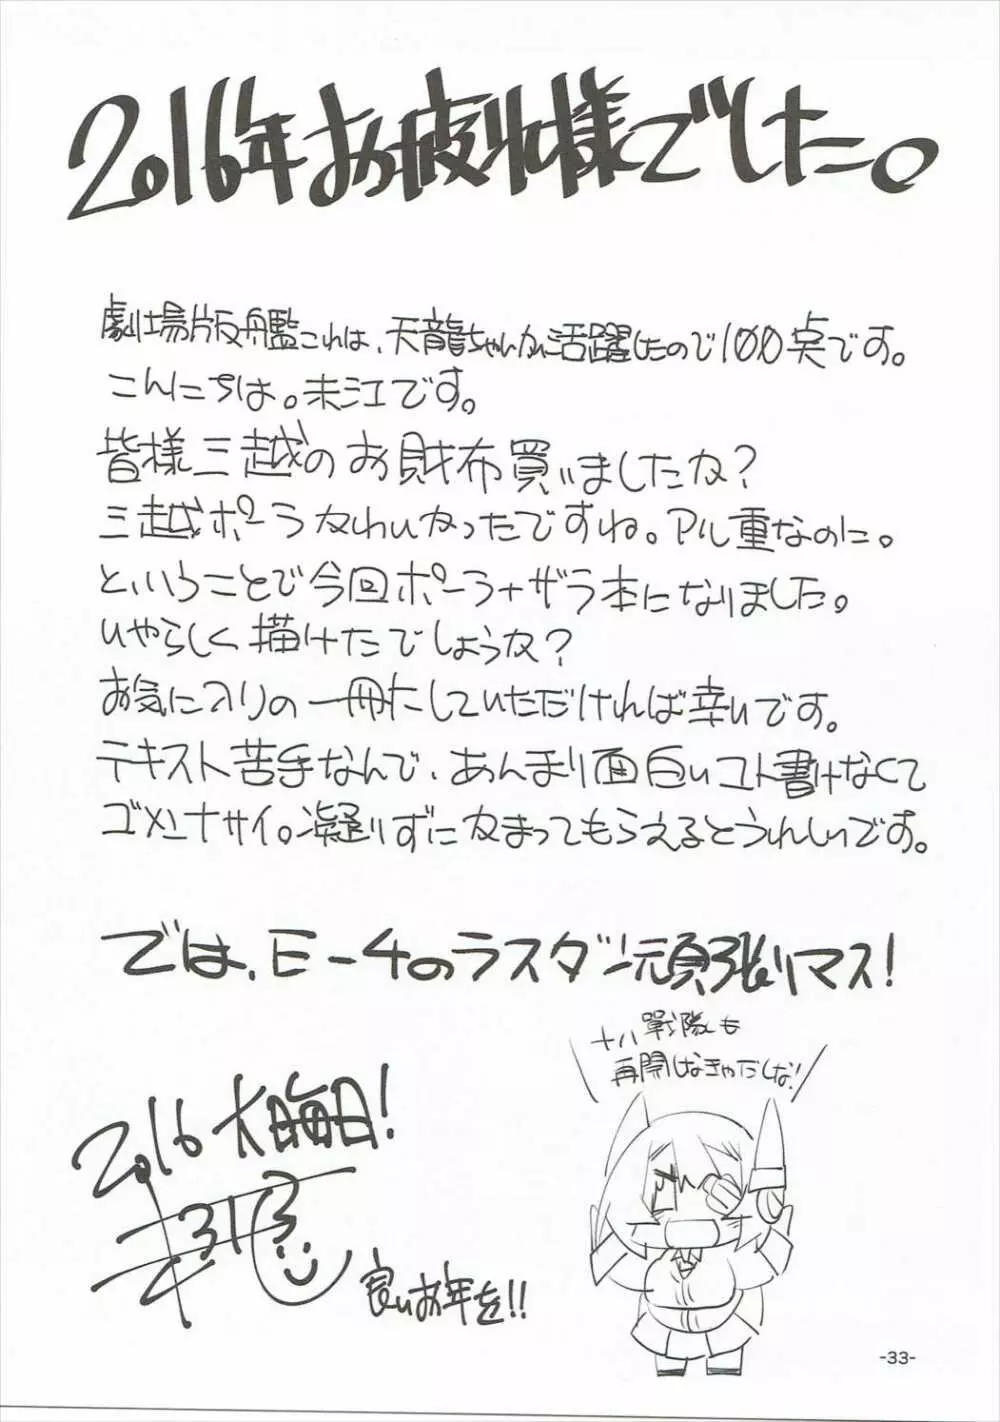 2016年お疲れ様でした。
劇場版艦これは、天龍ちゃんが活躍したので100点です。
こんにちは。未江です。
皆様三越のお財布買いましたか？
三越ポーラかわいかったですね。アル重なのに。
ということで今回ポーラ+ザラ本になりました。
いやらしく描けたでしょうか？
お気に入りの一冊にしていただければ幸いです。
テキスト苦手なんで、あんまり面白いコト書けなくて
ゴメンナサイ。凝りずにかまってもらえるとうれしいです。
では、E-4のラスダン頑張りマス！
十八戰隊も
再開しなきゃだしな！
2016 大晦日！
良いお年を！！
-33-